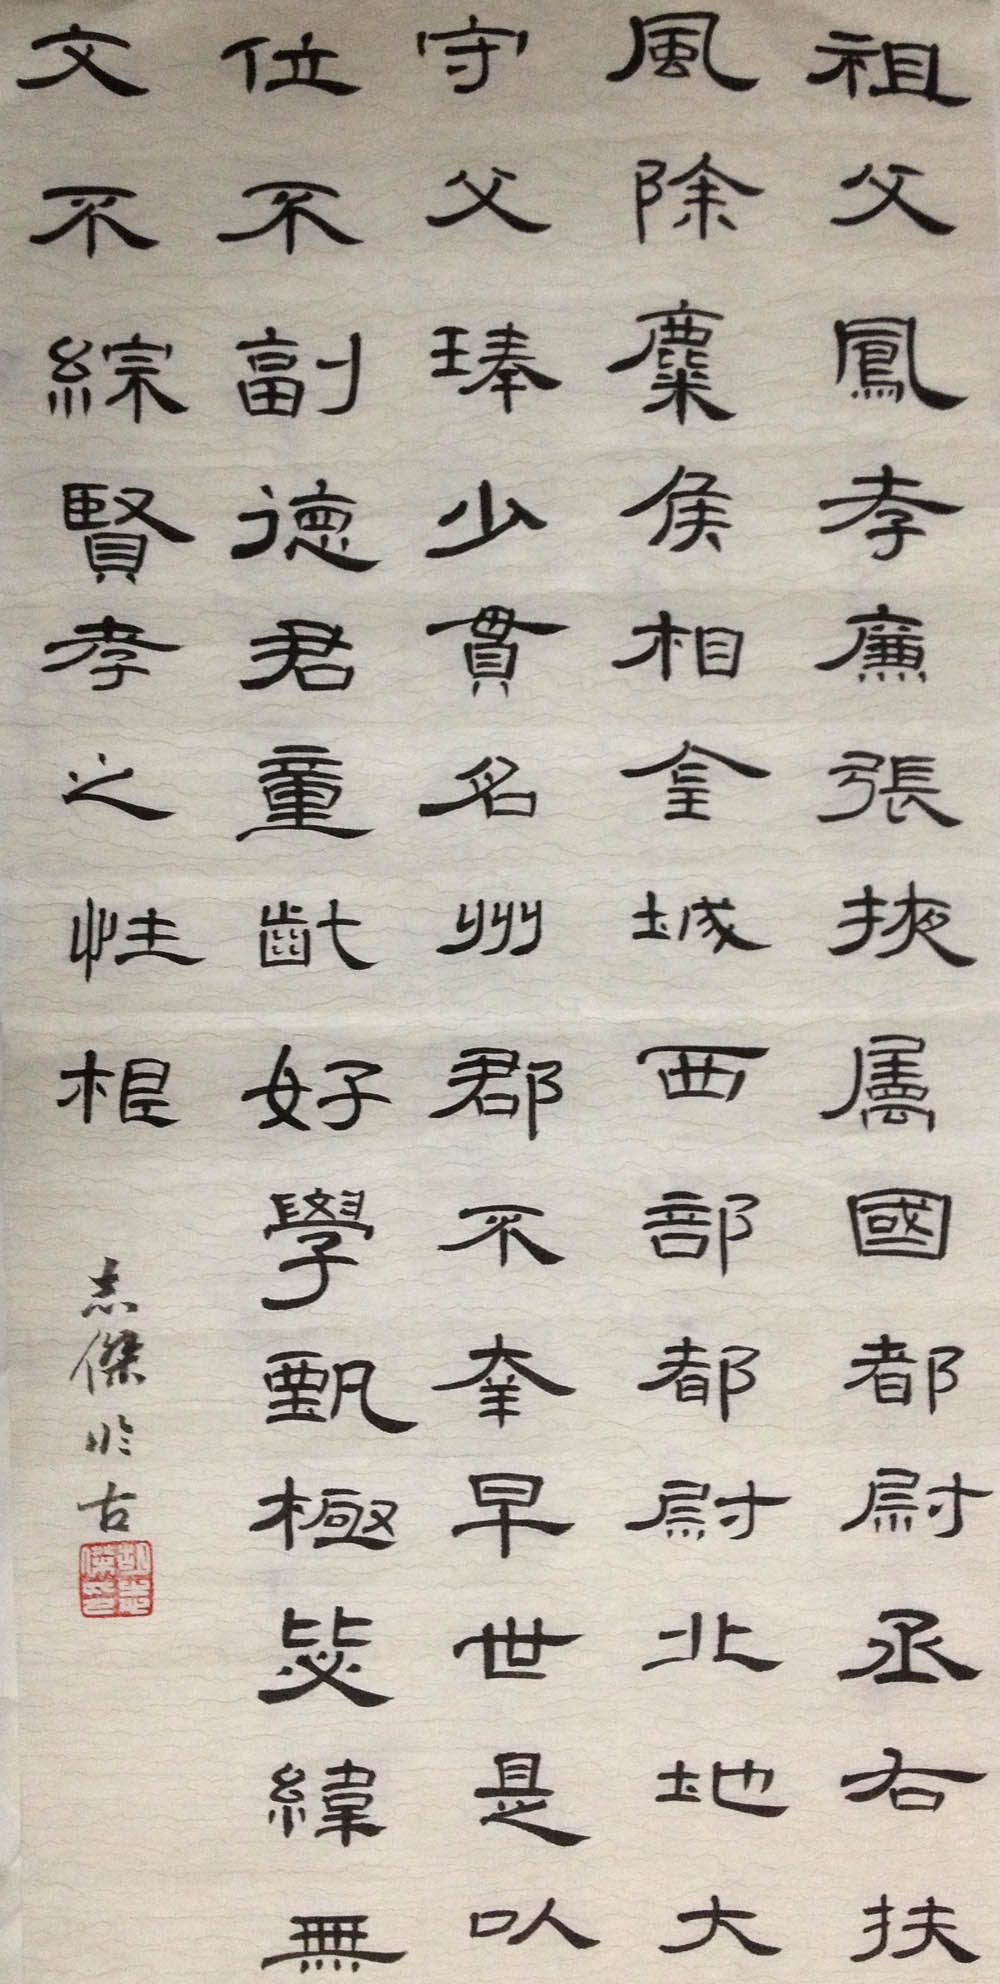 祖父鳳孝廉張掖屬國都尉丞右扶
風除麋侯相金城西部都尉北地大
守父琫少貫名州郡不幸早世是以
位不副德君童齔好學甄極毖緯無
文不綜賢孝之性根
志傑臨古